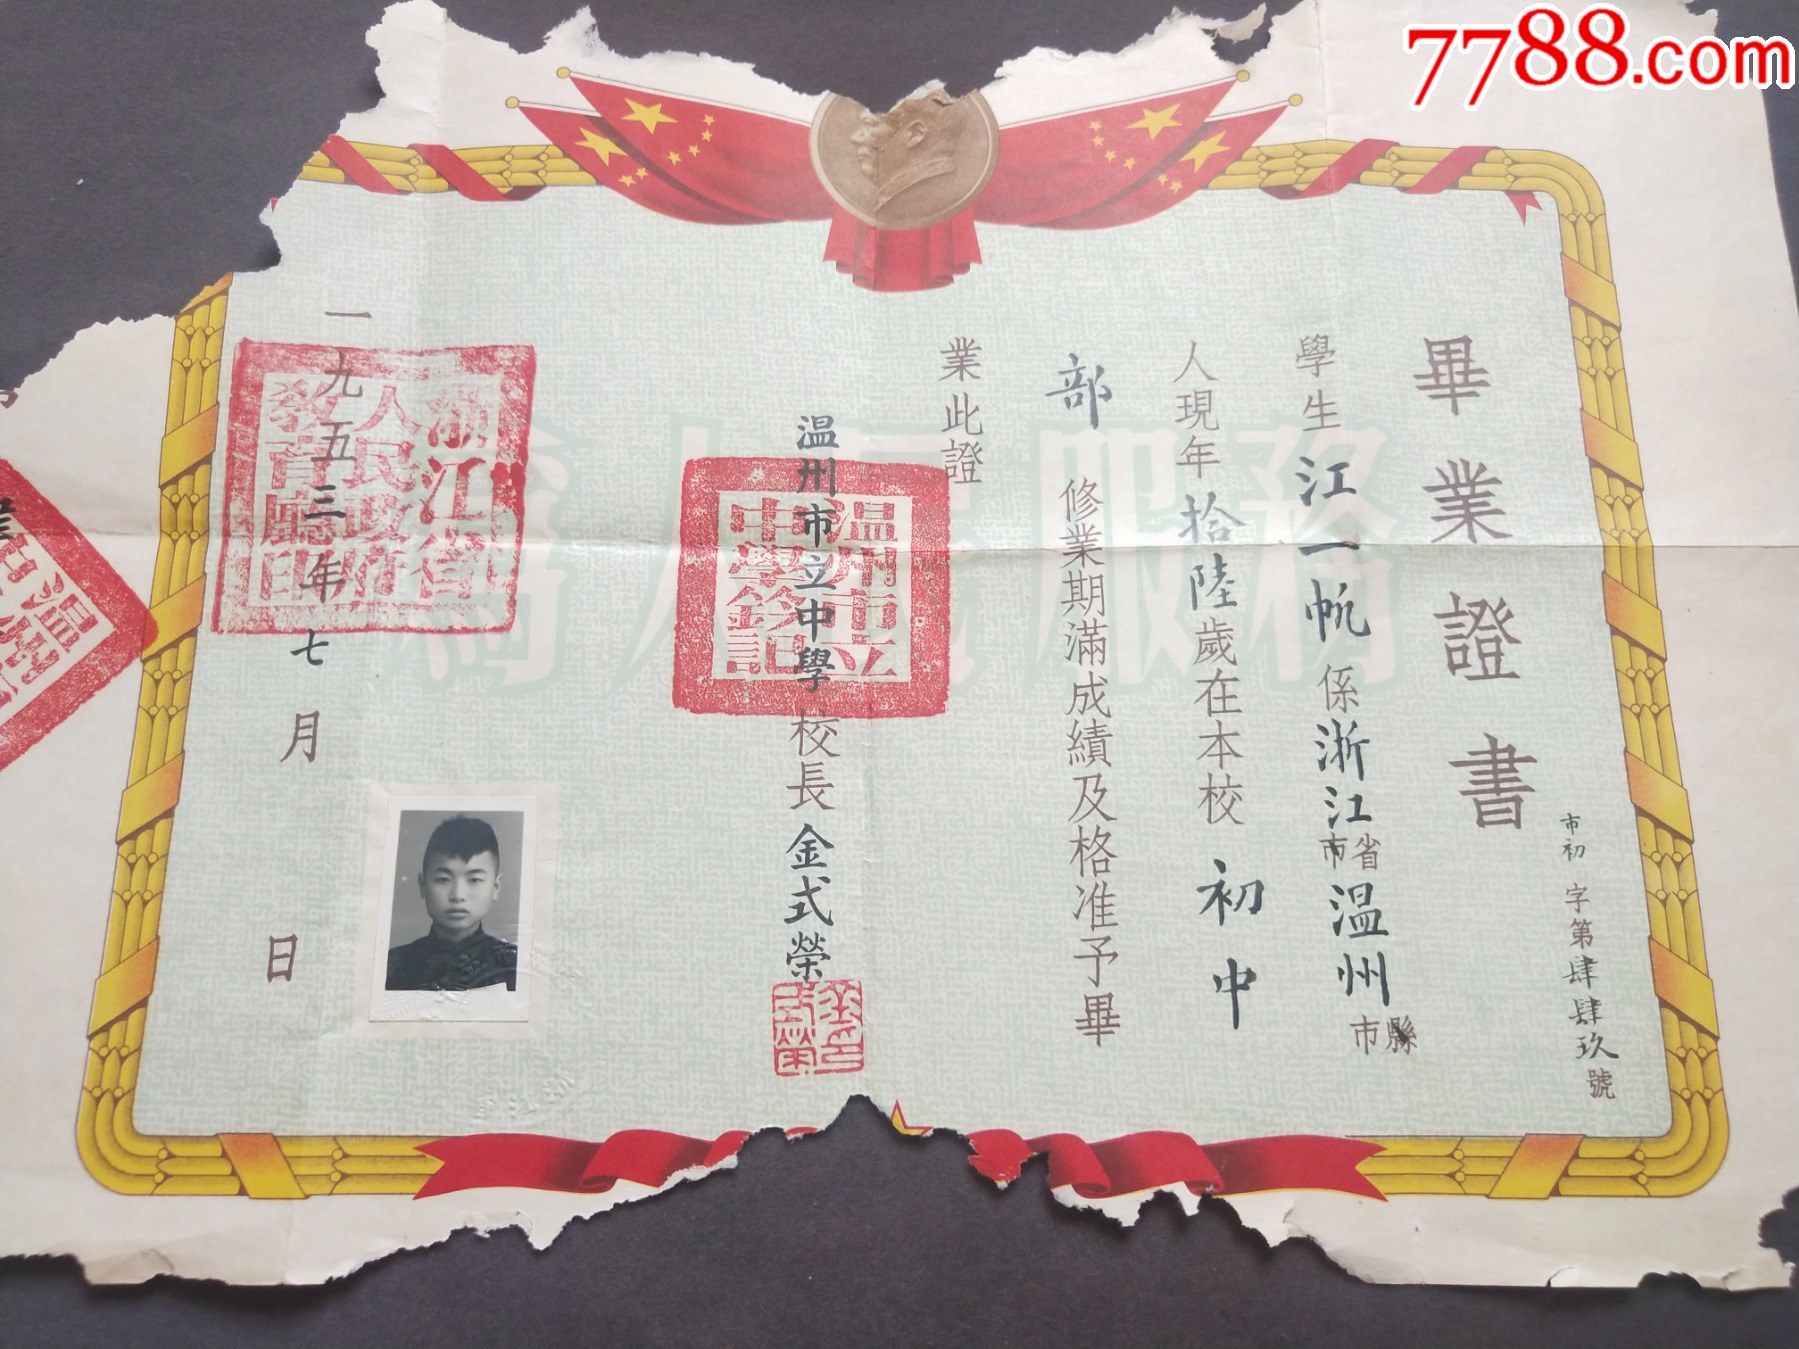 7788.com
畢業證書
市初字第肆肆玖號
學生江一帆係浙江省市溫州縣市
人現年拾陸歲在本校初中
部修業期滿成績及格准予畢
業此證
溫州市立中學校長金式榮
一九五三年七月日
為人民服務
浙江省人民政府教育廳印
溫州市立中學鈐記